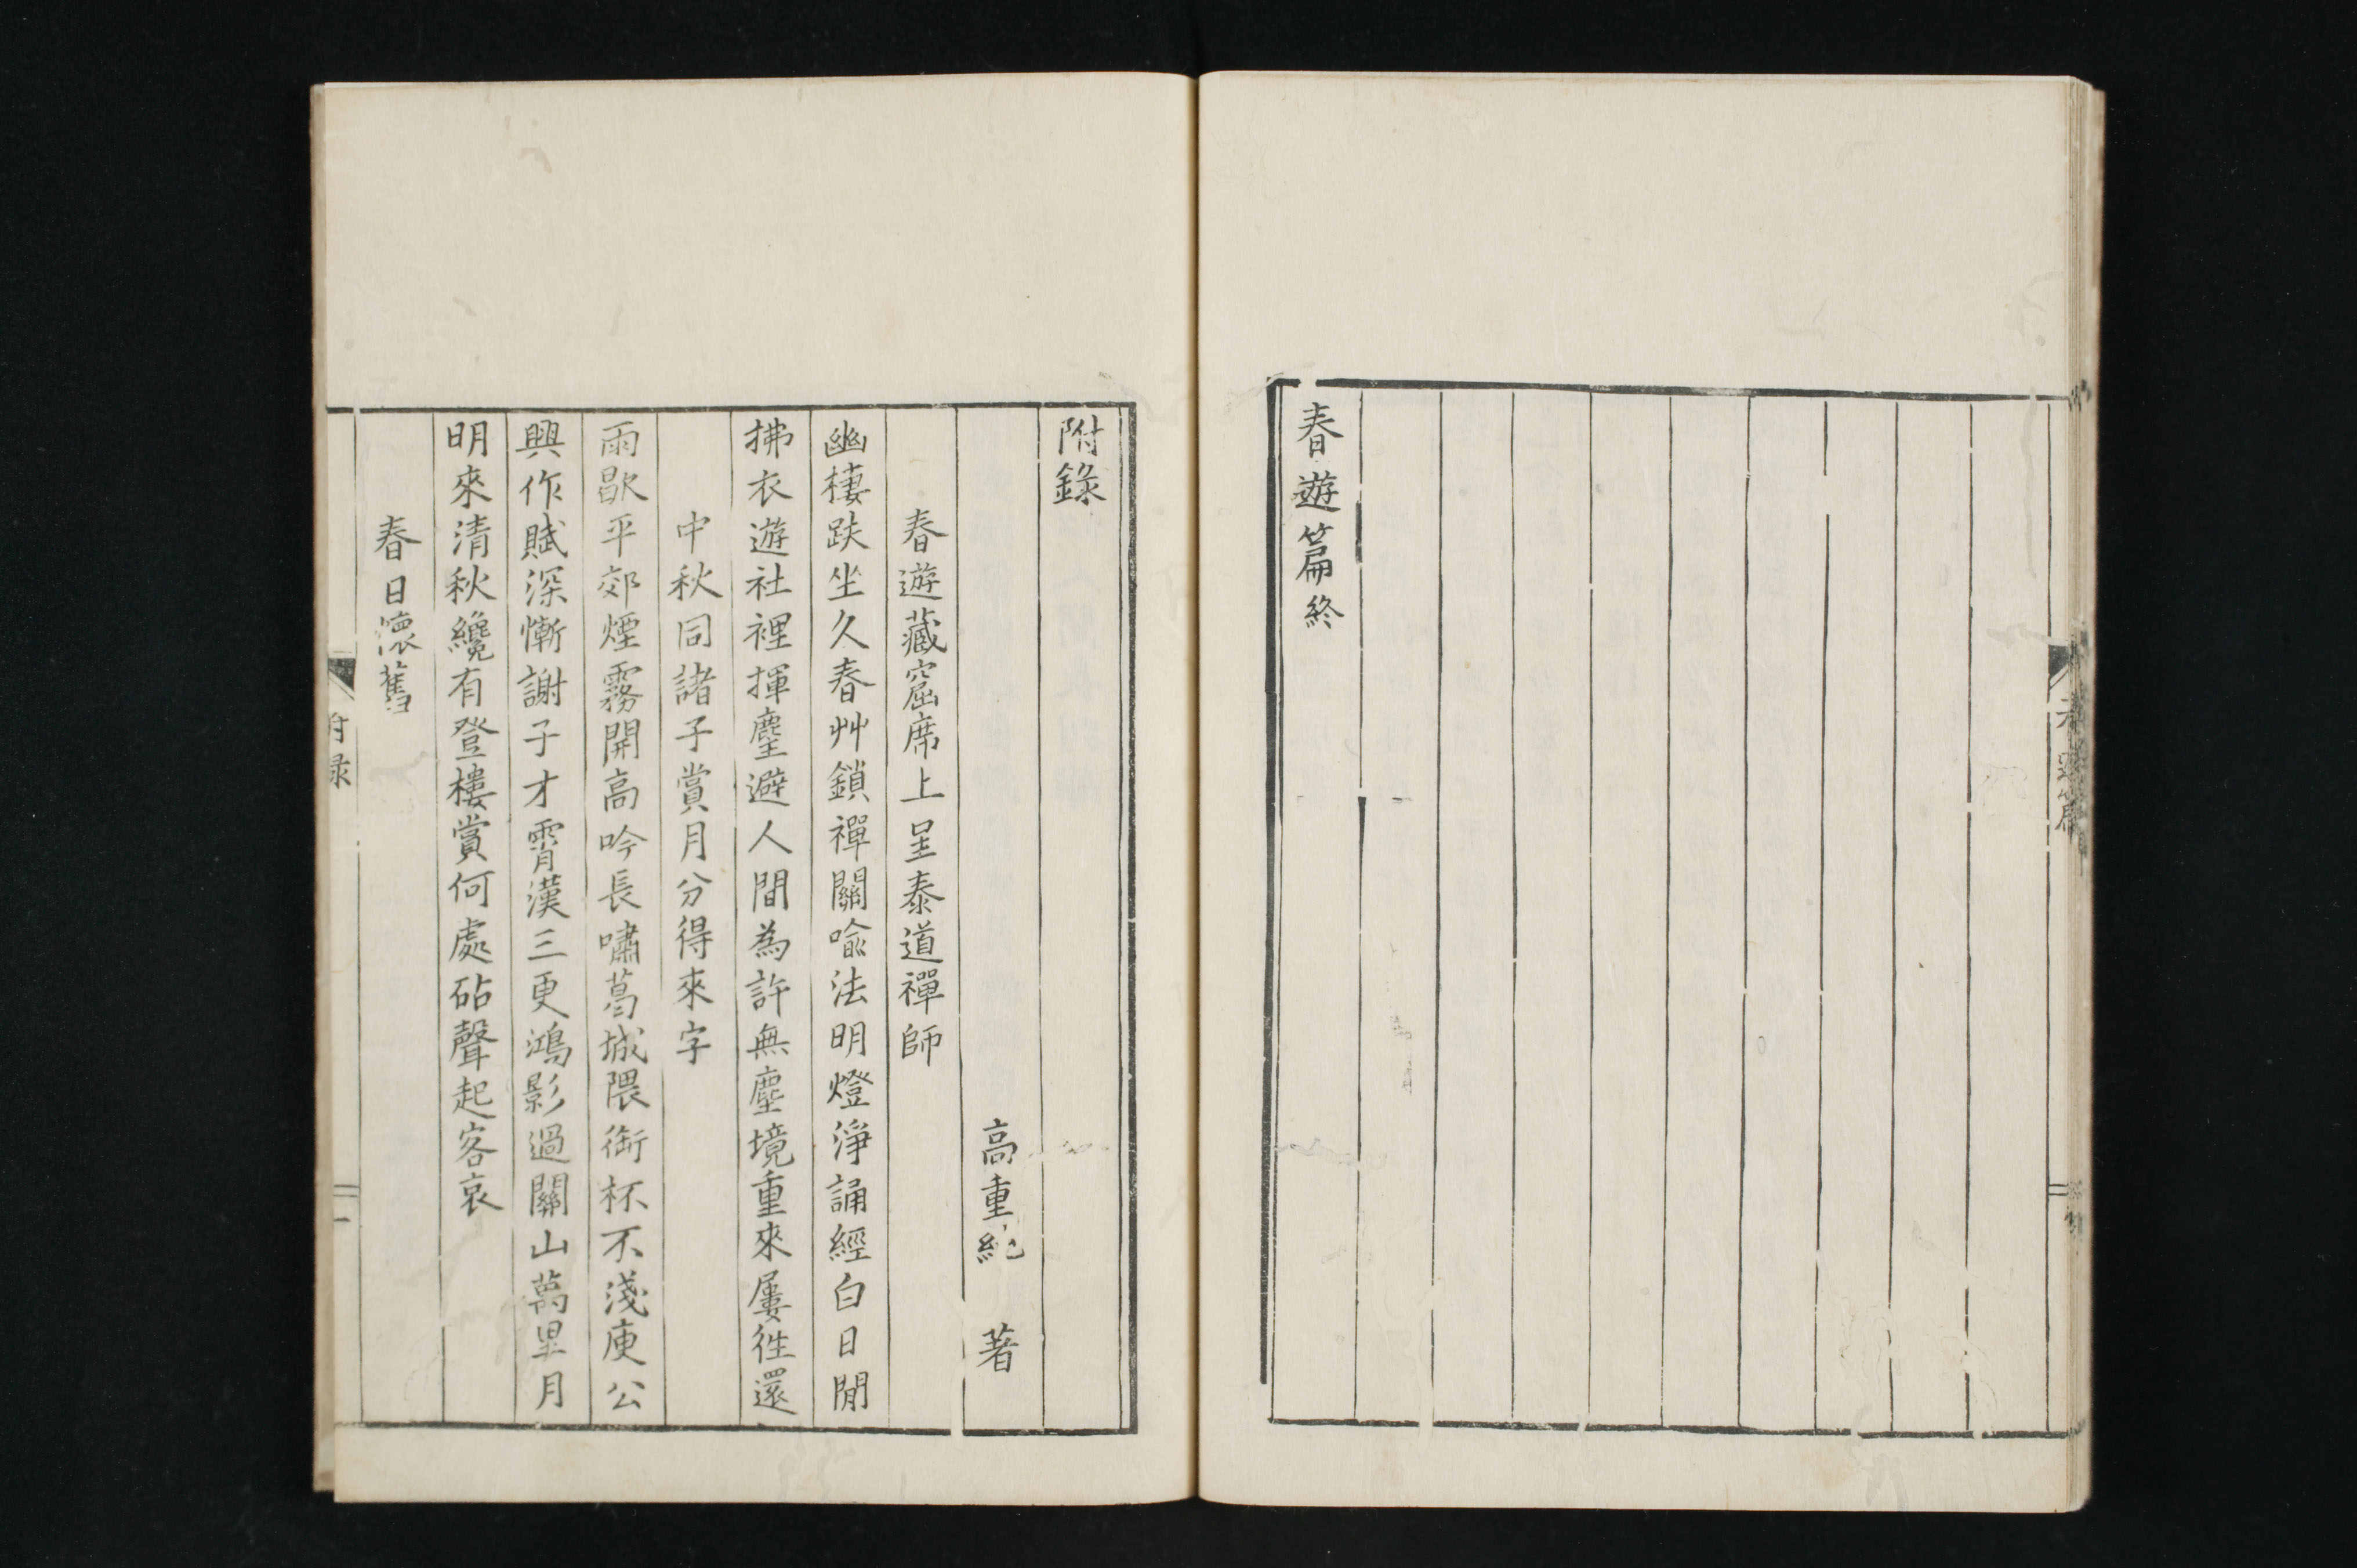 春遊篇
春遊篇終
附錄
高重 著
春遊藏窟席上呈泰道禪師
幽棲趺坐久春艸鎖禪關喩法明燈淨誦經白日閒
拂衣遊社裡揮麈避人間為許無塵境重來屢徃還
中秋同諸子賞月分得來字
雨歇平郊煙霧開高吟長嘯葛城隈銜杯不淺庾公
興作賦深慚謝子才霄漢三更鴻影過關山萬里月
明來清秋纔有登樓賞何處砧聲起客哀
春日懷舊
附錄
一